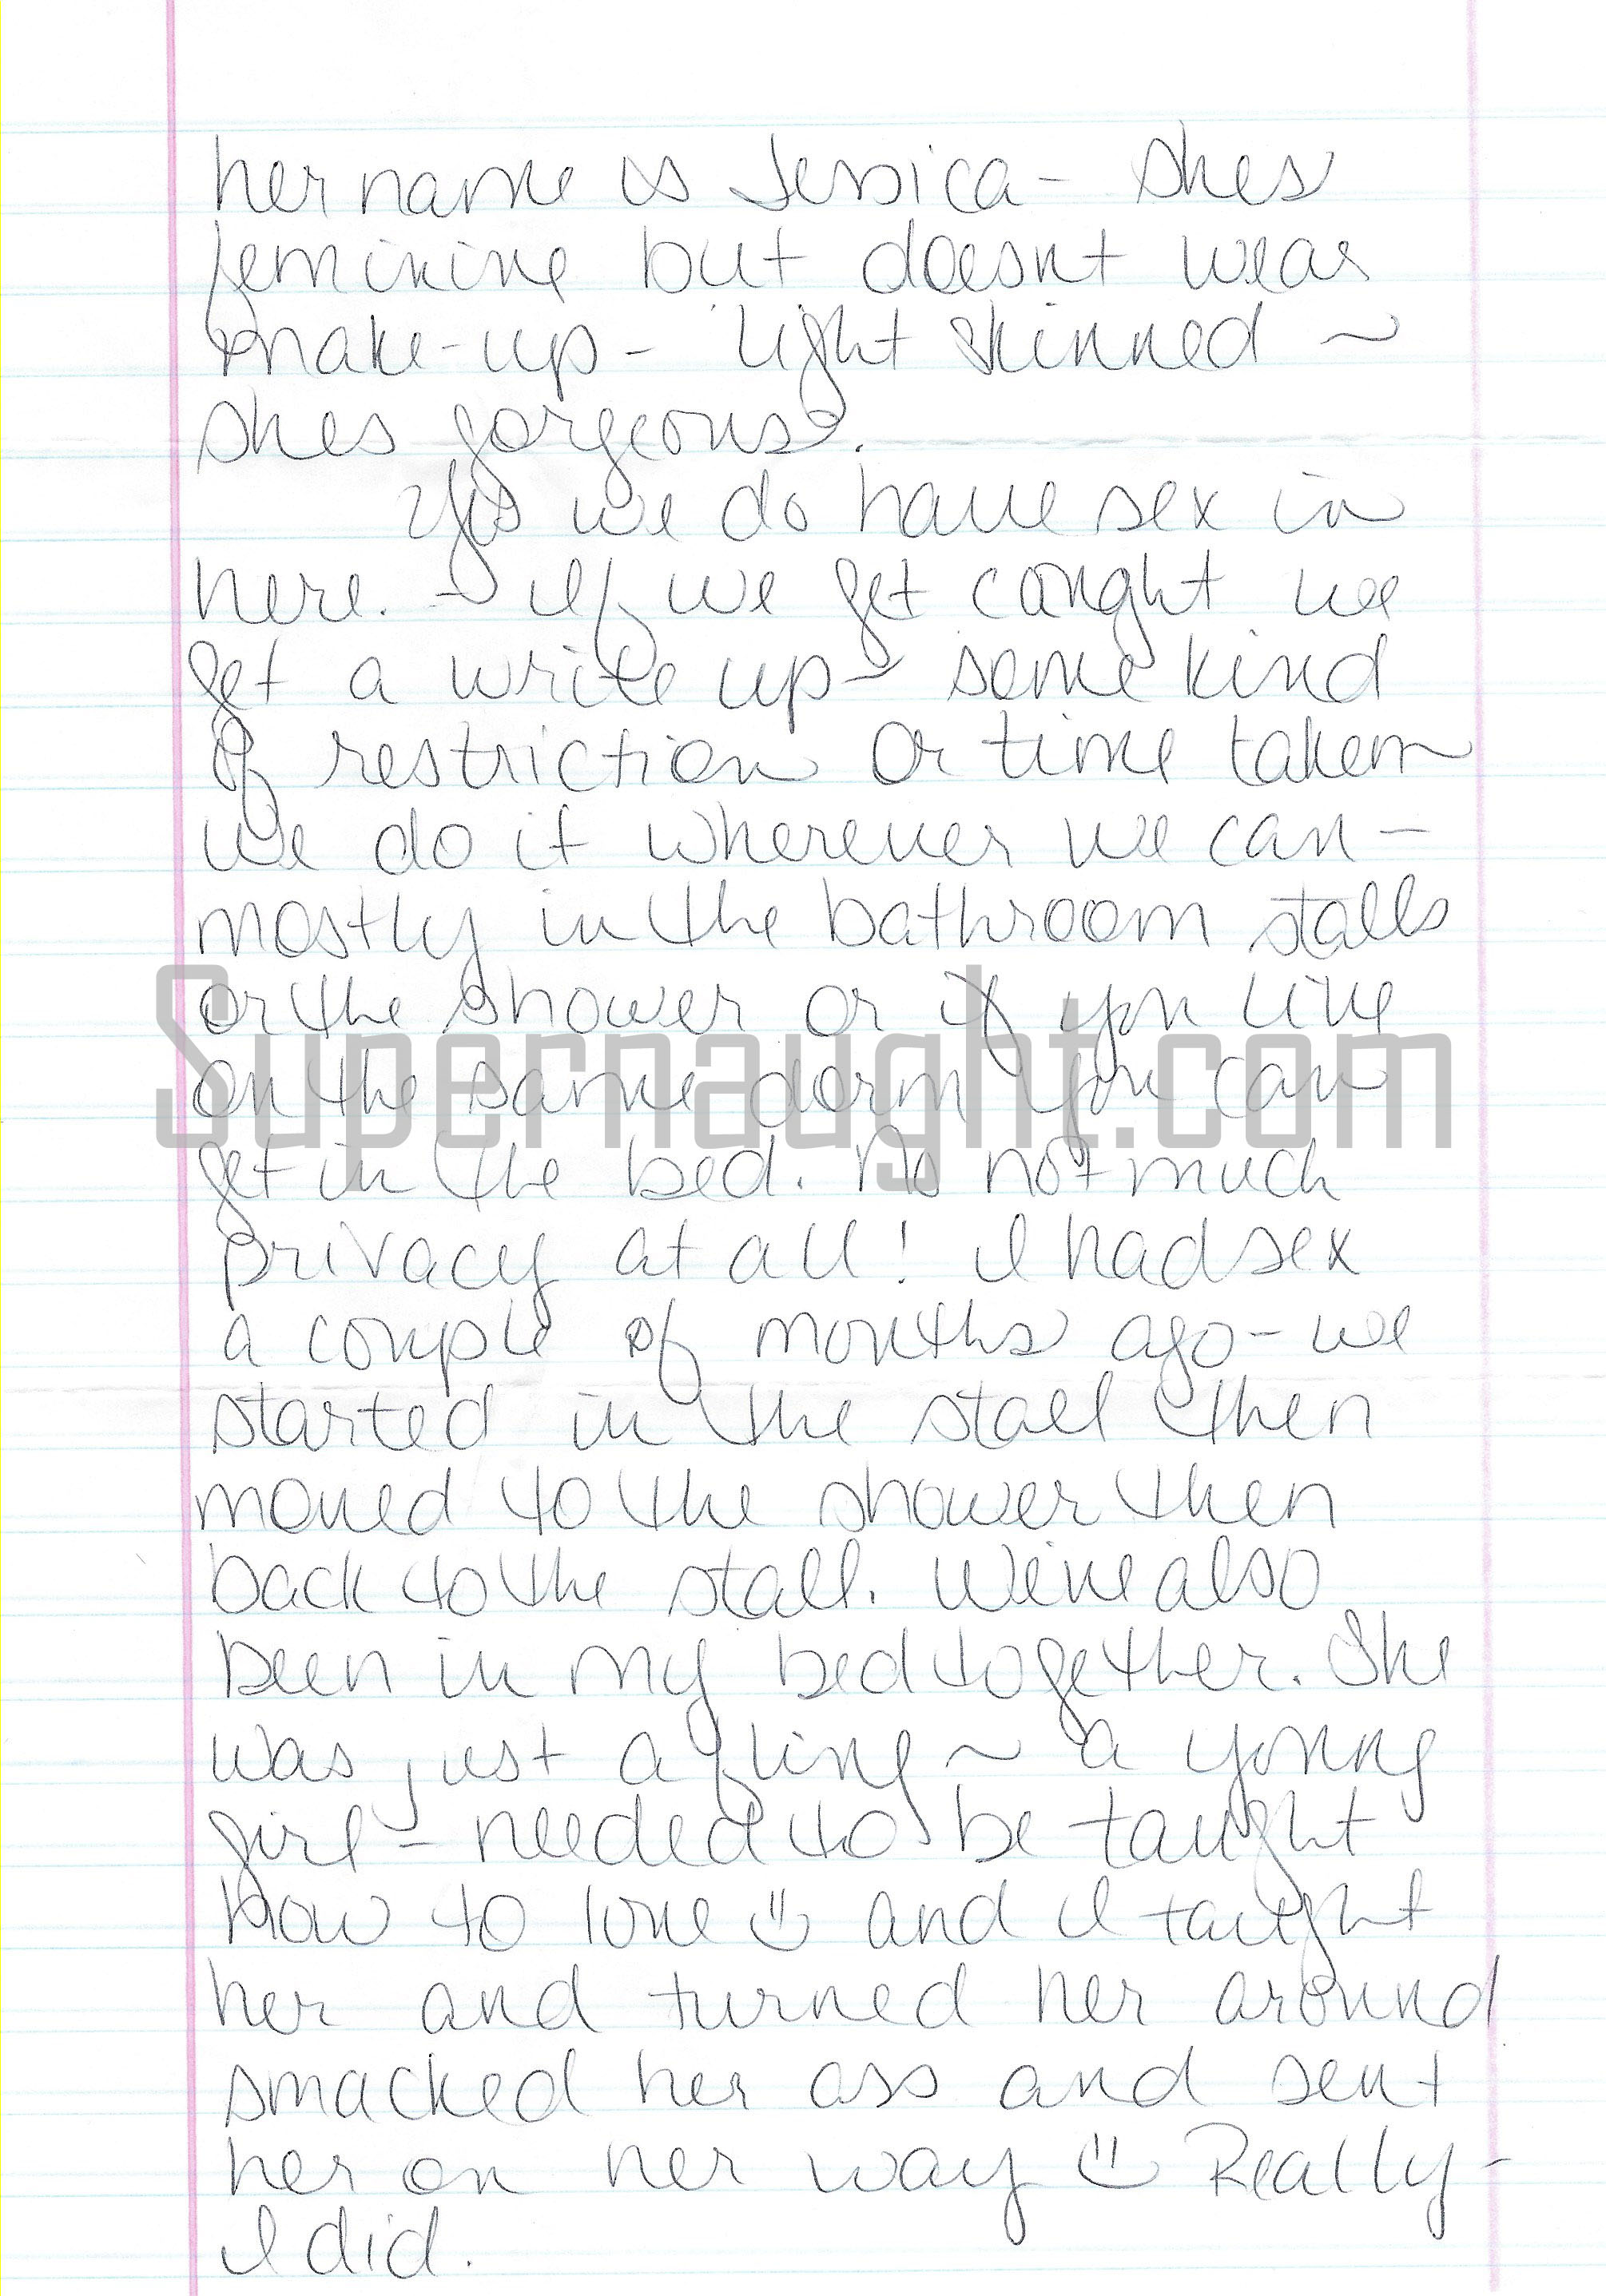 her name is Jessica - shes
feminine but doesnt wear
make-up - light skinned ~
shes gorgeous.
Yes we do have sex in
here. - If we get caught we
get a write up - some kind
of restriction or time taken
we do it wherever we can -
mostly in the bathroom stalls
or the shower or if you live
Supernaught.com
on the same dorm you can
get in the bed. No not much
privacy at all! I had sex
a couple of months ago - we
started in the stall then
moved to the shower then
back to the stall. Weve also
been in my bed together. She
was just a fling ~ a young
girl - needed to be taught
how to love and I taught
her and turned her around
smacked her ass and sent
her on her way Really -
I did.